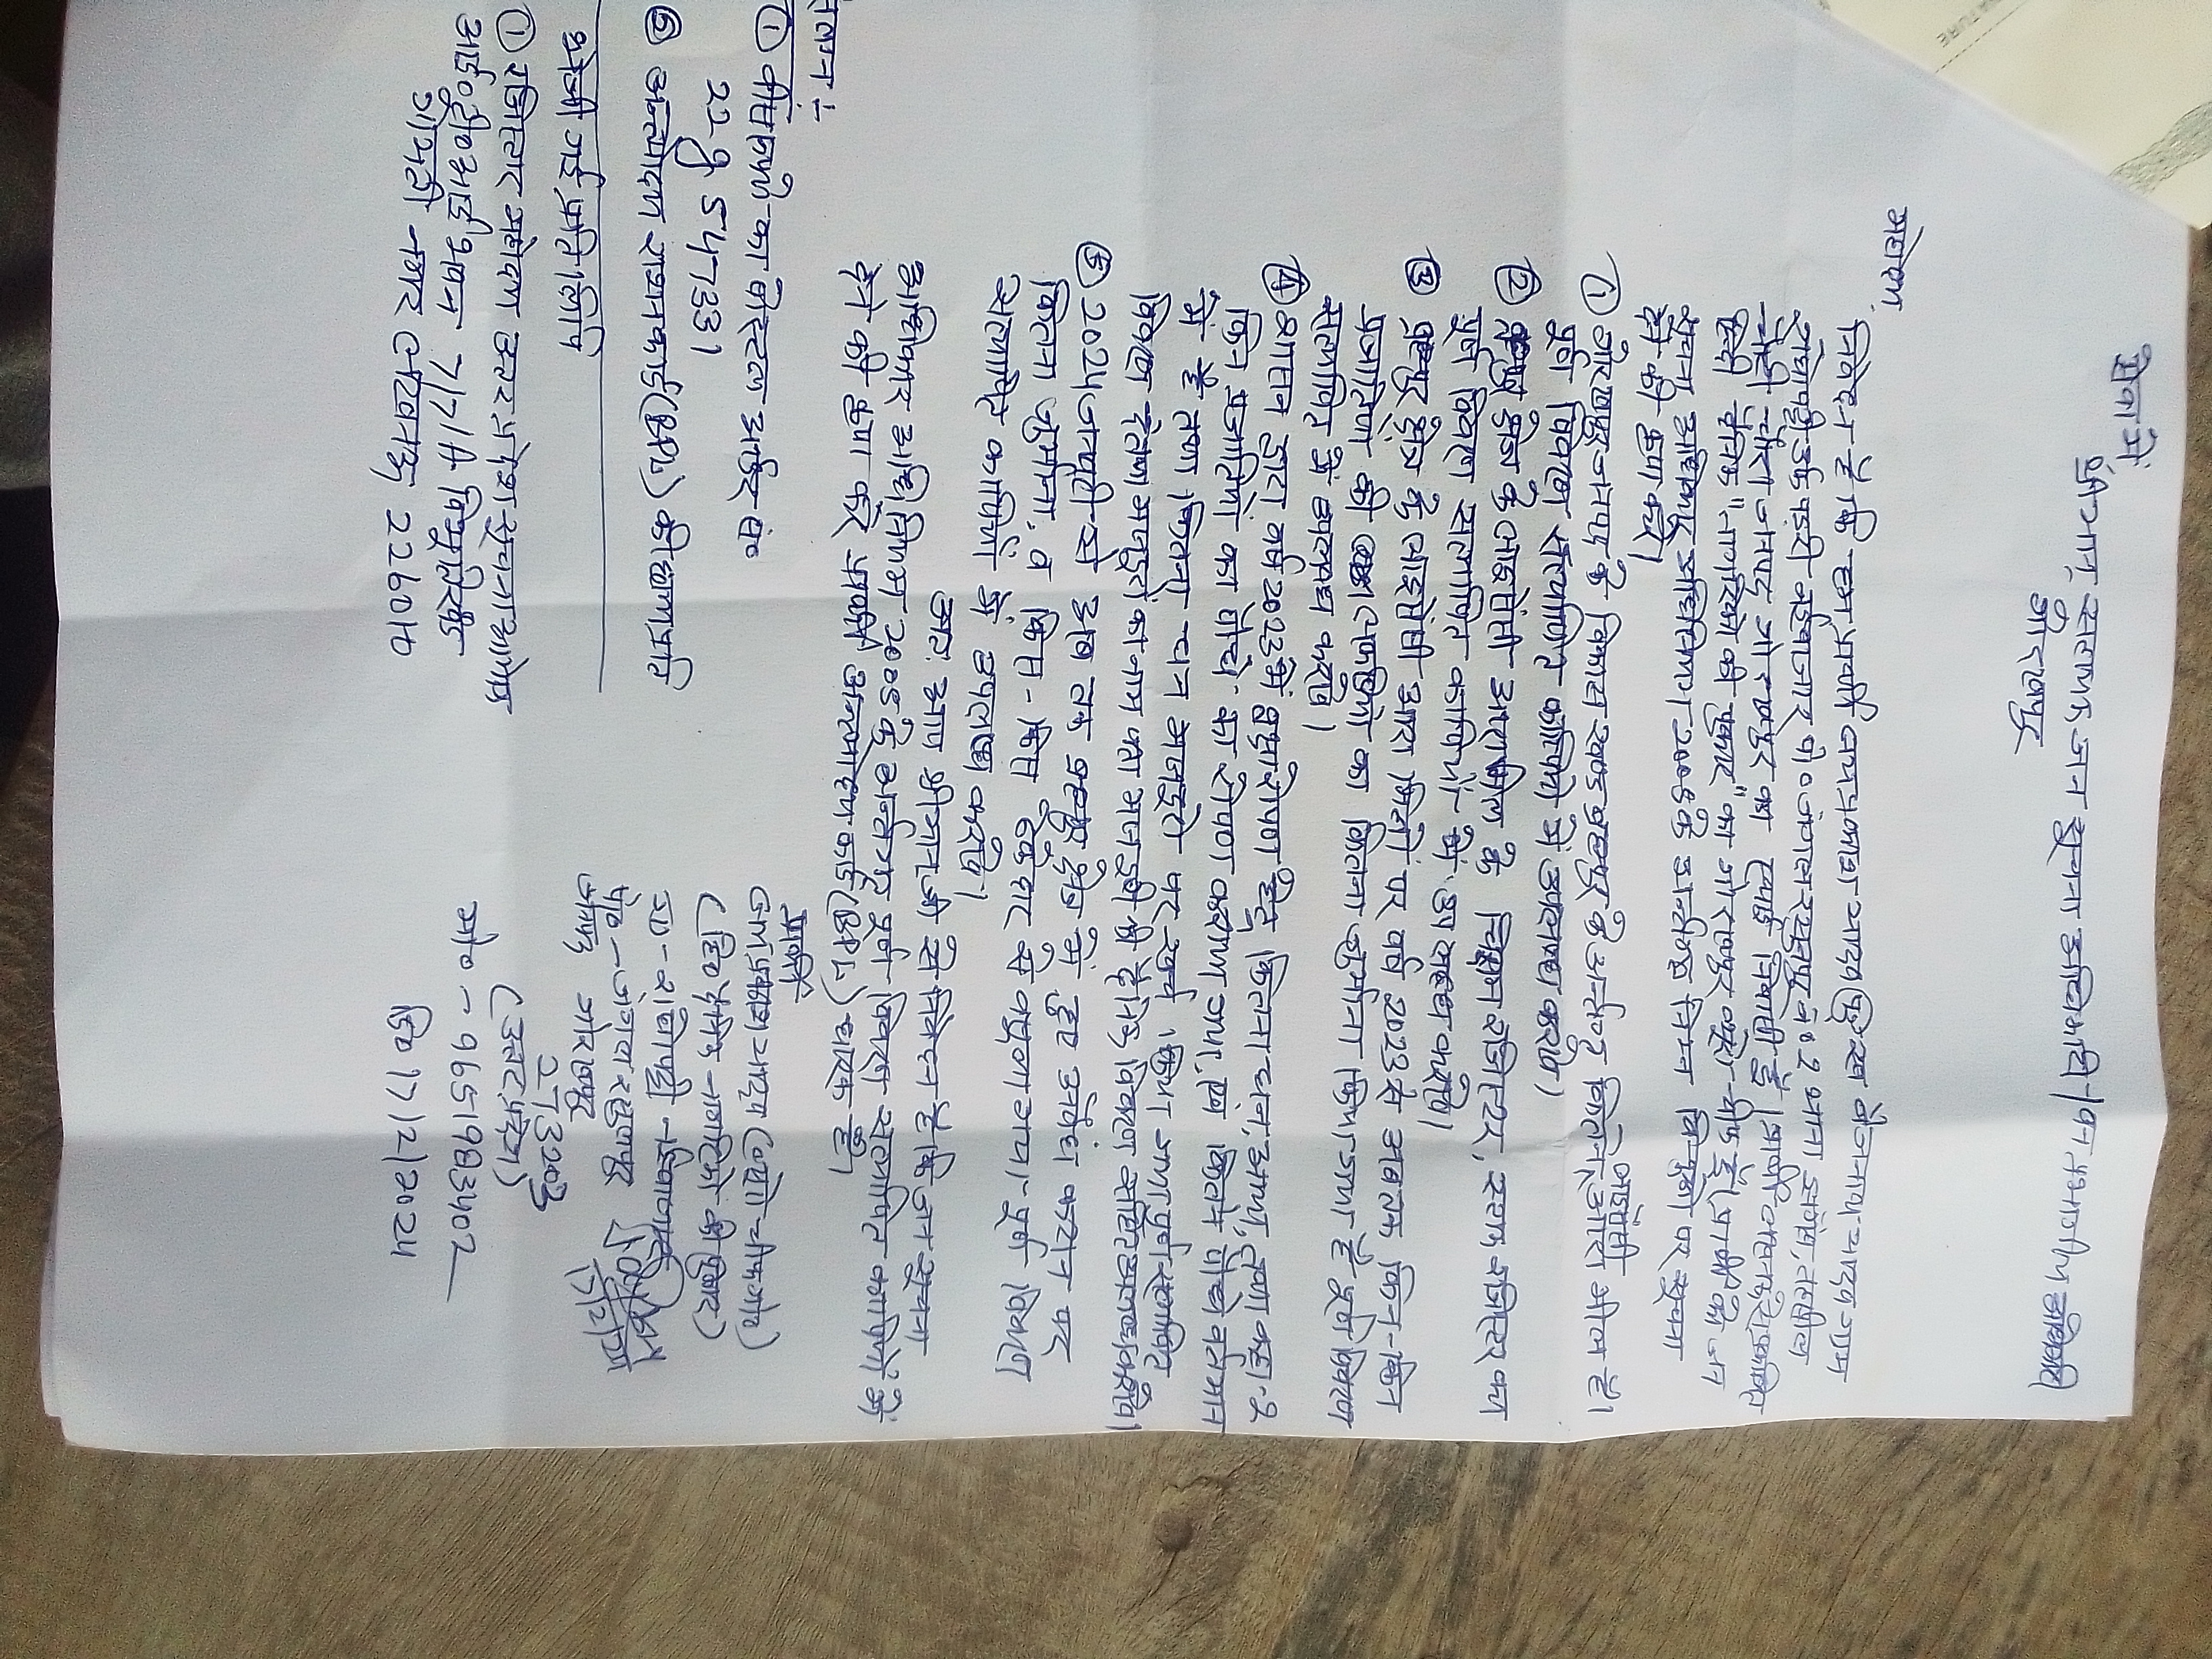 सेवा में,
श्रीमान्, सहायक जन सूचना अधिकारी/वन प्रभागीय अधिकारी
गोरखपुर
महोदय,
निवेदन है कि हम प्रार्थी जय प्रकाश यादव पुत्र स्व बैजनाथ यादव ग्राम
रोवापट्टी उर्फ पड़री भईवाजार पो० जंगल रसूलपुर नं० 2 थाना तहसील
चौरी चौरा जनपद गोरखपुर का स्थाई निवासी है। प्रार्थी
हिन्दी दैनिक "नागरिकों की पुकार" का गोरखपुर ब्यूरो चीफ है। प्रार्थी को जन
सूचना अधिकार अधिनियम 2005 के अन्तर्गत निम्न बिन्दुओं पर सूचना
देने की कृपा करें।
① गोरखपुर जनपद के विकास खण्ड ब्रह्मपुर के अन्तर्गत कितने आरा मील है।
लाइसेंसी
पूर्ण विवरण सत्यापित कापियों में उपलब्ध करावे।
② ब्रह्मपुर क्षेत्र के लाइसेंसी आरा मील के निरीक्षण रजिस्टर, स्टाक रजिस्टर का
पूर्ण विवरण सत्यापित कापियों में उपलब्ध करावे।
③ ब्रह्मपुर क्षेत्र के लाइसेंसी आरा मिलों पर वर्ष 2023 से अबतक किन-किन
प्रजातियों की लकड़ियों का कितना जुर्माना किया गया है पूर्ण विवरण
सत्यापित में उपलब्ध करावे।
④ शासन द्वारा वर्ष 2023 में वृक्षारोपण हेतु कितना धन आया, तथा कहा-2
किन प्रजातियों का पौधों का रोपण कराया गया, एवं कितने पौधे वर्तमान
में है तथा कितना धन मजदूरी पर खर्च किया गया पूर्ण सत्यापित
विवरण देते हुए मजदूरों का नाम पता मजदूरी की दैनिक विवरण सहित उपलब्ध करावे।
⑤ 2024 जनवरी से अब तक ब्रह्मपुर क्षेत्र में हुए अवैध कटान पर
कितना जुर्माना, व किस-किस ठेकेदार से वसूला गया। पूर्ण विवरण
सत्यापित कापियों में उपलब्ध करावे।
अतः आप श्रीमान जी से निवेदन है कि जन सूचना
अधिकार अधिनियम 2005 के अन्तर्गत पूर्ण विवरण सत्यापित कापियों में
देने की कृपा करें प्रार्थी अन्त्योदय कार्ड (BPL) धारक है।
संलग्न :-
① बीस रुपये का पोस्टल आर्डर सं०
22 जी 547331
② अन्त्योदय राशनकार्ड (BPL) की छायाप्रति
भेजी गई प्रतिलिपि
① रजिस्टार महोदय उत्तर प्रदेश सूचना आयोग
आई०टी०आई भवन 7/7/A विभूतिखंड
गोमती नगर लखनऊ 226010
प्रार्थी
जय प्रकाश यादव (ब्यूरो चीफ गोर०)
(हि० दैनिक नागरिकों की पुकार)
पो०-जंगल रसूलपुर
जनपद गोरखपुर
273203
(उत्तर प्रदेश)
मो० - 9651983402
17/2/2024
दि० 17/2/2024